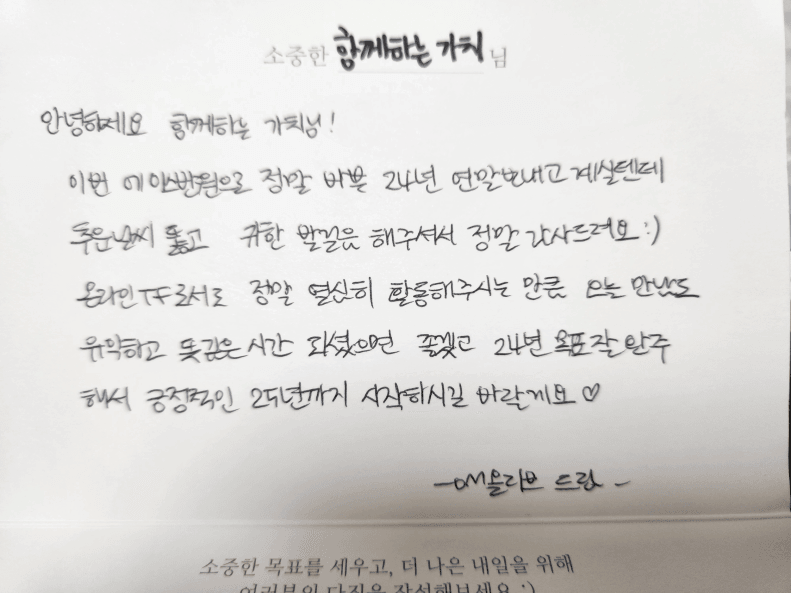 소중한 함께하는 가치 님
안녕하세요 함께하는 가치님!
이번 에이스번원으로 정말 바쁜 24년 연말보내고 계실텐데
추운날씨 뚫고 귀한 발걸음 해주셔서 정말 감사드려요:)
온라인TF로서도 정말 열심히 활동해주시는 만큼 오늘 만남도
유익하고 뜻깊은시간 되셨으면 좋겠고 24년 목표잘완주
해서 긍정적인 25년까지 시작하시길 바랄게요♡
-올리브 드림-
소중한 목표를 세우고, 더 나은 내일을 위해
여러분의 다짐을 작성해보세요 :)